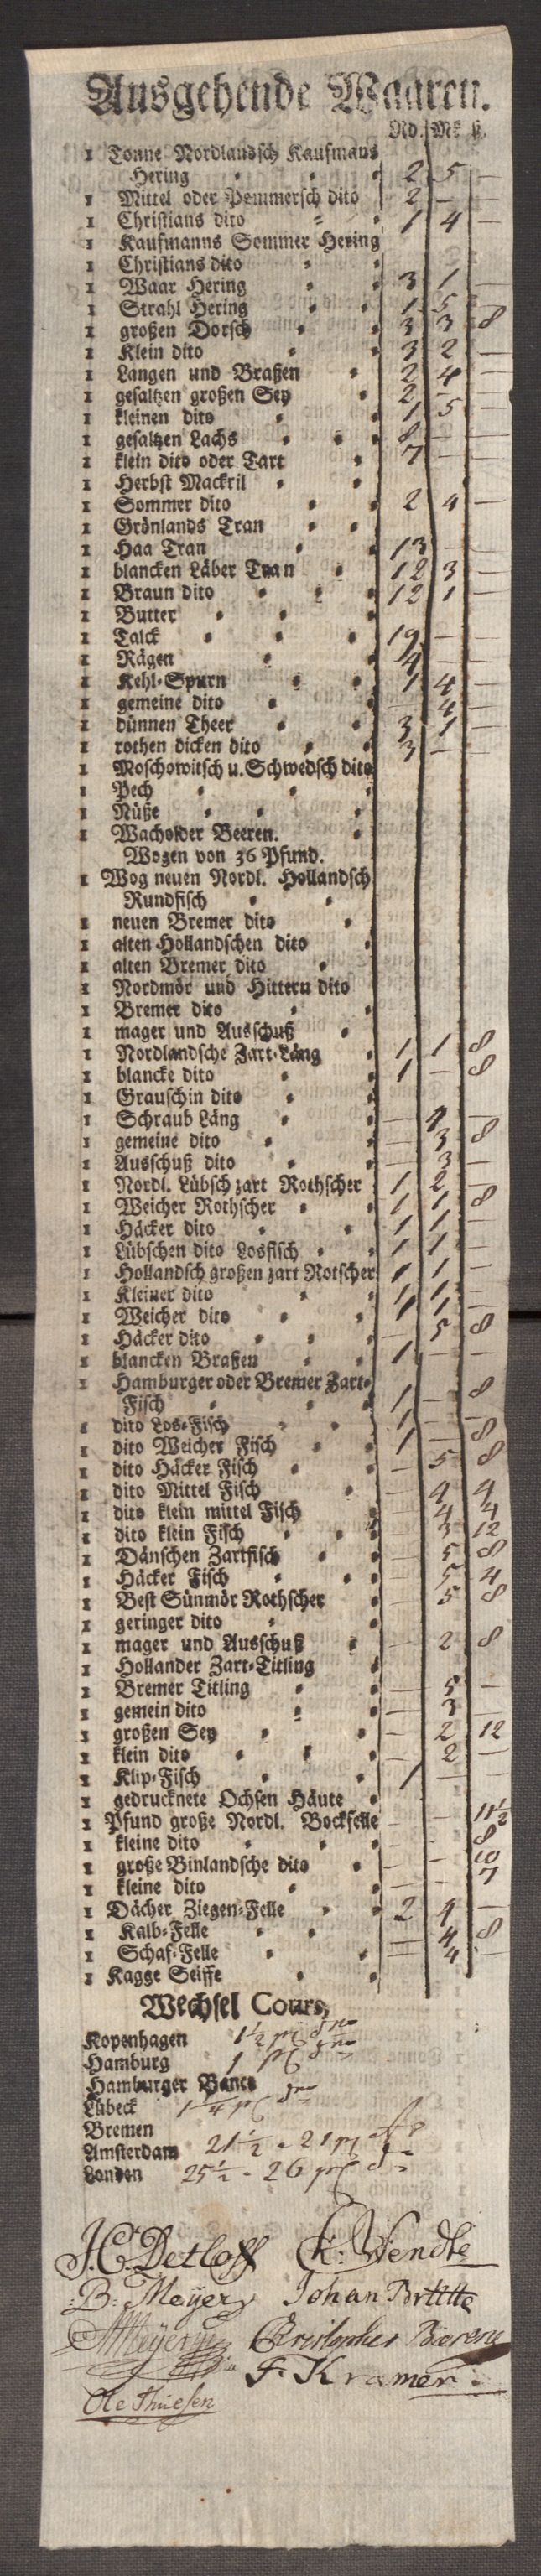 Ausgehende Waaren.
Rd. Mk ß.
1 Tonne Nordlandsch Kaufmans
Hering 2 5 —
1 Mittel oder Pommersch dito 2 —
1 Christians dito 1 4 —
1 Kaufmanns Sommer Hering
1 Christians dito
1 Waar Hering 3 1 —
1 Strahl Hering 1 5 —
1 großen Dorsch 3 3 8
1 Klein dito 3 2 —
1 Langen und Braßen 2 4 —
1 gesaltzen großen Sey 2 — —
1 kleinen dito 1 5 —
1 gesaltzen Lachs 8 — —
1 klein dito oder Tart 7 — —
1 Herbst Mackril
1 Sommer dito 2 4 —
1 Grönlands Tran
1 Haa Tran 13 — —
1 blancken Läber Tran 12 3 —
1 Braun dito 12 1 —
1 Butter
1 Talck 19 — —
1 Rägen 4 — —
1 Kehl-Spurn 1 4 —
1 gemeine dito — 4 —
1 dünnen Theer 3 1 —
1 rothen dicken dito 3 — —
1 Moschowitsch u. Schwedsch dito
1 Pech
1 Nüße
1 Wacholder Beeren.
Wogen von 36 Pfund.
1 Wog neuen Nordl. Hollandsch
Rundfisch
1 neuen Bremer dito
1 alten Hollandschen dito
1 alten Bremer dito
1 Nordmör und Hittern dito
1 Bremer dito
1 mager und Ausschuß
1 Nordlandsche Zart-Läng 1 1 8
1 blancke dito 1 — 8
1 Grauschin dito
1 Schraub Läng — 4 —
1 gemeine dito — 3 8
1 Ausschuß dito — 3 —
1 Nordl. Lübsch zart Rothscher 1 2 —
1 Weicher Rothscher 1 1 8
1 Häcker dito 1 1 —
1 Lübschen dito Losfisch 1 1 —
1 Hollandsch großen zart Rotscher 1 1 —
1 Kleiner dito 1 1 —
1 Weicher dito 1 1 —
1 Häcker dito — 5 8
1 blancken Braßen 1 — —
1 Hamburger oder Bremer Zart-
Fisch 1 — 8
1 dito Los-Fisch 1 — —
1 dito Weicher Fisch 1 — 8
1 dito Häcker Fisch — 5 8
1 dito Mittel Fisch — 4 4
1 dito klein mittel Fisch — 4 4
1 dito klein Fisch — 3 12
1 Dänschen Zartfisch — 5 8
1 Häcker Fisch — 5 4
1 Best Sünmör Rothscher — 5 8
1 geringer dito
1 mager und Ausschuß — 2 8
1 Hollander Zart-Titling
1 Bremer Titling — 5 —
1 gemein dito — 3 —
1 großen Sey — 2 12
1 klein dito — 2 —
1 Klip-Fisch 1 — —
1 gedrucknete Ochsen Häute
1 Pfund große Nordl. Bockfelle — — 11½
1 kleine dito — — 8
1 große Binlandsche dito — — 10
1 kleine dito — — 7
1 Dächer Ziegen-Felle 2 4 —
1 Kalb-Felle — 4 8
1 Schaf-Felle — 4
1 Kagge Seiffe
Wechsel Cours,
Kopenhagen 1½
Hamburg 1
Hamburger Banco
Lübeck 1¼
Bremen
Amsterdam 21½ - 21
London 25½ - 26
J. C. Detloff K: Wendte
B: Meyer Johan
Meyer Christopher
F. Kramer
Ole Thuesen